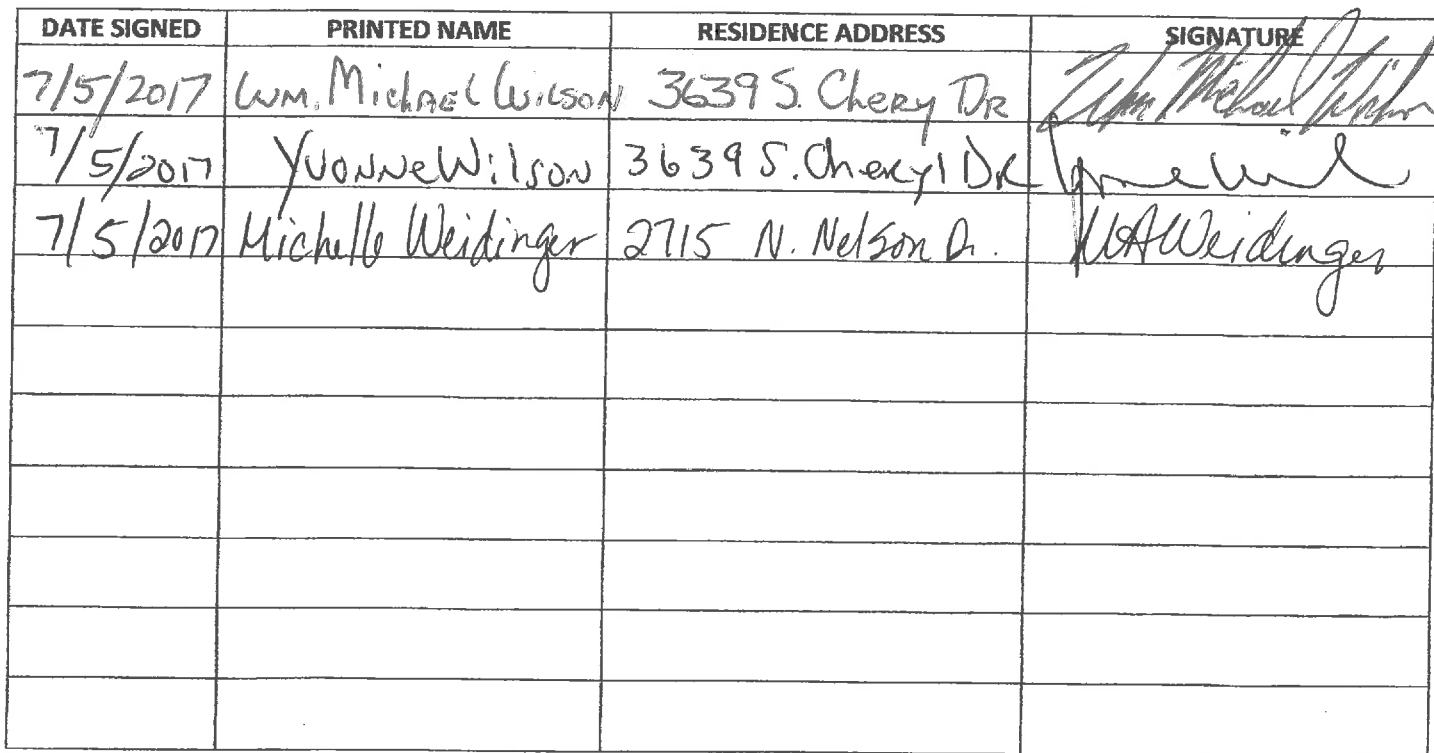 DATE SIGNED PRINTED NAME RESIDENCE ADDRESS SIGNATURE
7/5/2017 Wm. Michael Wilson 3639 S. Chery DR Wm Michael Wilson
7/5/2017 Yvonne Wilson 3639 S. Cheryl DR
7/5/2017 Michelle Weidinger 2715 N. Nelson Dr. MAWeidinger